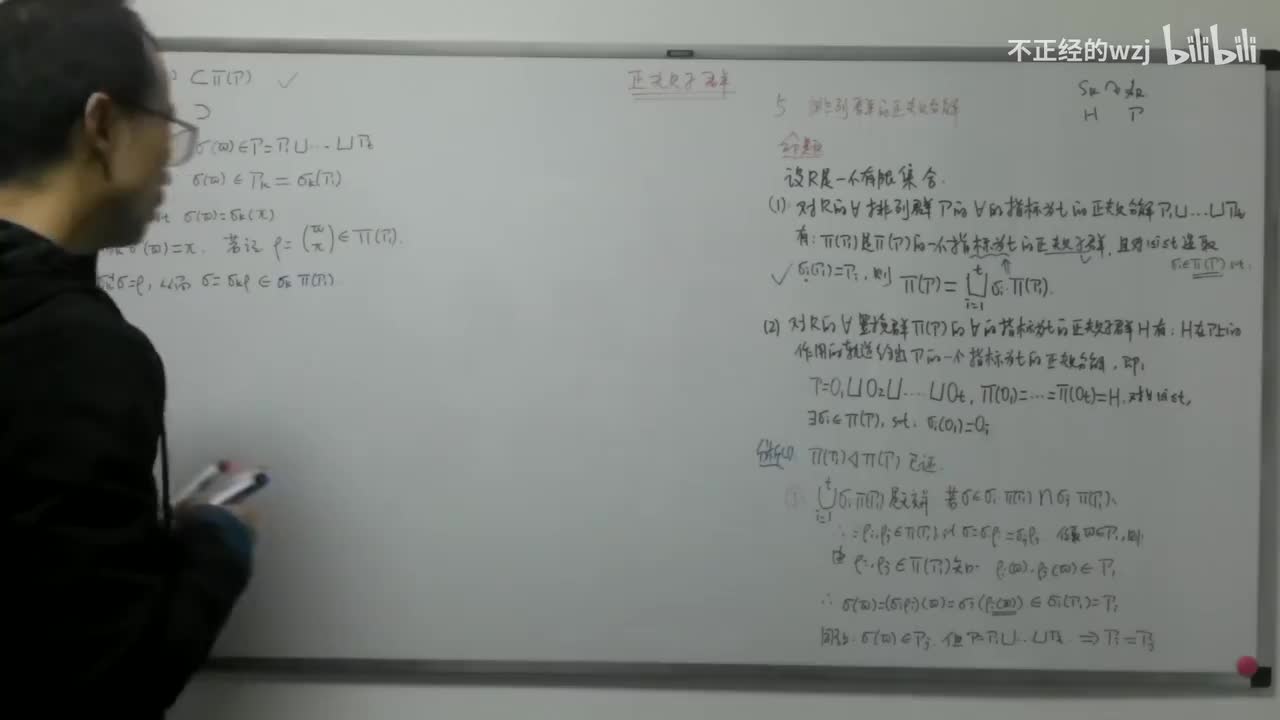 不正经的wzj bilibili
⊂ Π(P) ✓
⊃
σ(ϖ)∈P=P₁⊔…⊔Pₜ
σ(ϖ)∈Pₖ=σₖ(P₁)
st σ(ϖ)=σₖ(π)
σ(ϖ)=π. 若记 ρ=(ϖ π)∈Π(P₁).
σ=ρ, 从而 σ=σₖρ∈σₖΠ(P₁)
正规子群
5 排列群的正规分解
命题
设R是一个有限集合.
(1) 对R的∀排列群P的∀的指标为t的正规分解P₁⊔…⊔Pₜ
有: Π(P₁)是Π(P)的一个指标为t的正规子群, 且对1≤i≤t 选取
σᵢ∈Π(P) st.
✓ σᵢ(P₁)=Pᵢ, 则 Π(P)=⊔ᵢ₌₁ᵗ σᵢ·Π(P₁).
(2) 对R的∀置换群Π(P)的∀的指标为t的正规子群H有: H在P上的
作用的轨道给出P的一个指标为t的正规分解, 即:
P=O₁⊔O₂⊔….⊔Oₜ, Π(O₁)=…=Π(Oₜ)=H. 对∀1≤i≤t,
∃σᵢ∈Π(P), s.t. σᵢ(O₁)=Oᵢ
Π(P₁)◁Π(P) 已证.
① ⋃ᵢ₌₁ᵗ σᵢΠ(P₁) 若σ∈σᵢΠ(P₁)∩σⱼΠ(P₁).
ρᵢ,ρⱼ∈Π(P₁) st σ=σᵢρᵢ=σⱼρⱼ ϖ∈P₁, 则
由 ρᵢ,ρⱼ∈Π(P₁)知. ρᵢ(ϖ),ρⱼ(ϖ)∈P₁
∴ σ(ϖ)=(σᵢρᵢ)(ϖ)=σᵢ(ρᵢ(ϖ))∈σᵢ(P₁)=Pᵢ
同上 σ(ϖ)∈Pⱼ. 但P=P₁⊔…⊔Pₜ ⇒ Pᵢ=Pⱼ